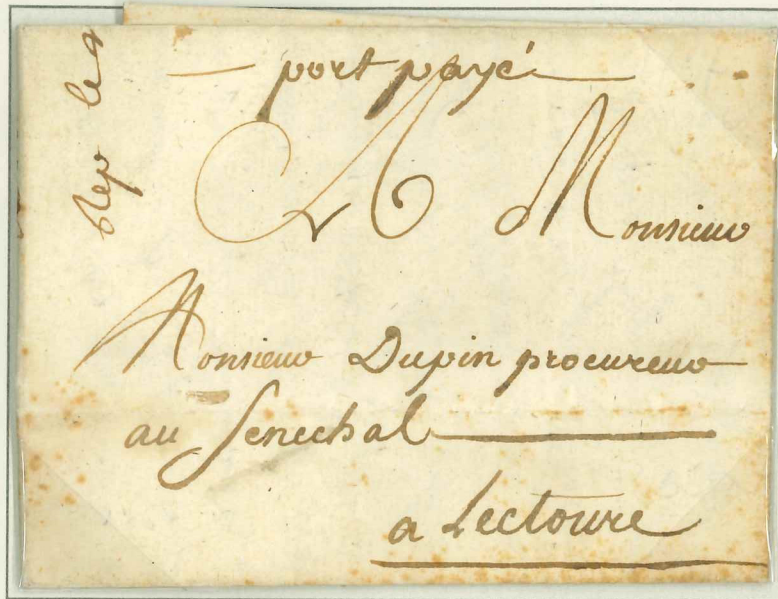 port payé
A Monsieur
Monsieur Dupin procureur
au Senechal
a Lectoure